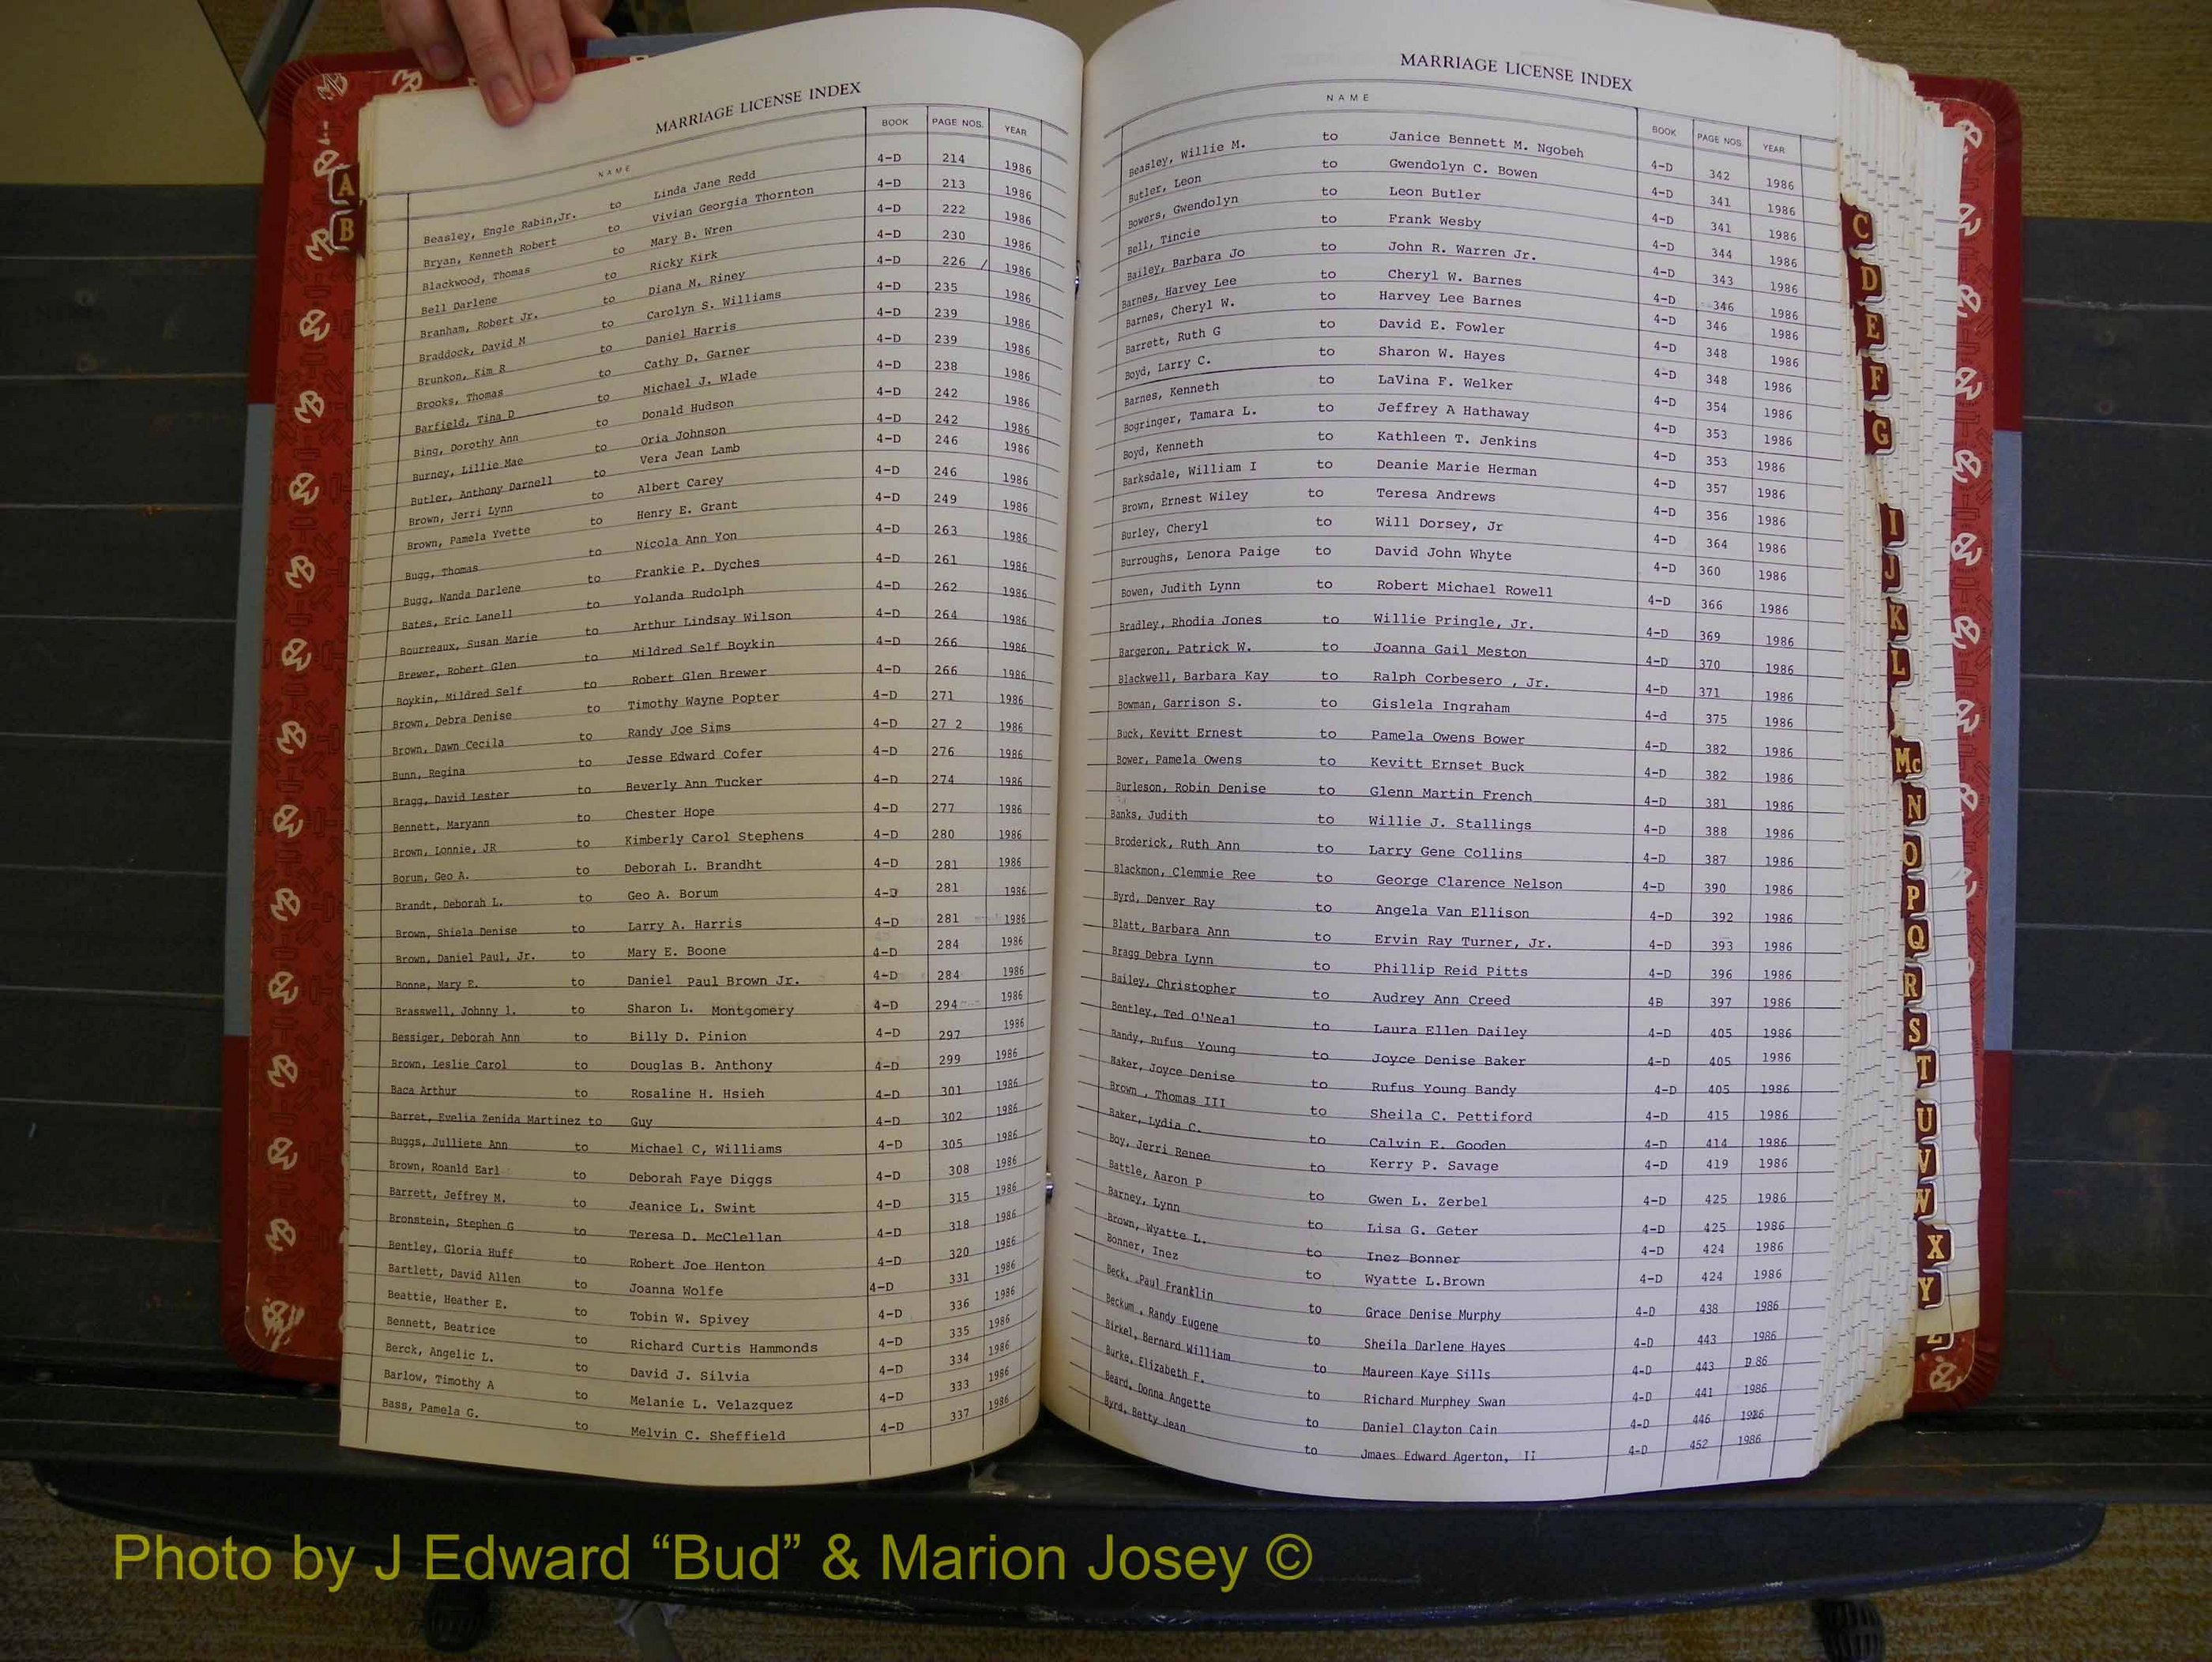 MARRIAGE LICENSE INDEX
NAME BOOK PAGE NOS. YEAR
Beasley, Engle Rabin,Jr. to Linda Jane Redd 4-D 214 1986
Bryan, Kenneth Robert to Vivian Georgia Thornton 4-D 213 1986
Blackwood, Thomas to Mary B. Wren 4-D 222 1986
Bell Darlene to Ricky Kirk 4-D 230 1986
Branham, Robert Jr. to Diana M. Riney 4-D 226 / 1986
Braddock, David M to Carolyn S. Williams 4-D 235 1986
Brunkon, Kim R to Daniel Harris 4-D 239 1986
Brooks, Thomas to Cathy D. Garner 4-D 239 1986
Barfield, Tina D to Michael J. Wlade 4-D 238 1986
Bing, Dorothy Ann to Donald Hudson 4-D 242 1986
Burney, Lillie Mae to Oria Johnson 4-D 242 1986
Butler, Anthony Darnell to Vera Jean Lamb 4-D 246 1986
Brown, Jerri Lynn to Albert Carey 4-D 246 1986
Brown, Pamela Yvette to Henry E. Grant 4-D 249 1986
Bugg, Thomas to Nicola Ann Yon 4-D 263 1986
Bugg, Wanda Darlene to Frankie P. Dyches 4-D 261 1986
Bates, Eric Lanell to Yolanda Rudolph 4-D 262 1986
Bourreaux, Susan Marie to Arthur Lindsay Wilson 4-D 264 1986
Brewer, Robert Glen to Mildred Self Boykin 4-D 266 1986
Boykin, Mildred Self to Robert Glen Brewer 4-D 266 1986
Brown, Debra Denise to Timothy Wayne Popter 4-D 271 1986
Brown, Dawn Cecila to Randy Joe Sims 4-D 27 2 1986
Bunn, Regina to Jesse Edward Cofer 4-D 276 1986
Bragg, David Lester to Beverly Ann Tucker 4-D 274 1986
Bennett, Maryann to Chester Hope 4-D 277 1986
Brown, Lonnie, JR to Kimberly Carol Stephens 4-D 280 1986
Borum, Geo A. to Deborah L. Brandht 4-D 281 1986
Brandt, Deborah L. to Geo A. Borum 4-D 281 1986
Brown, Shiela Denise to Larry A. Harris 4-D 281 1986
Brown, Daniel Paul, Jr. to Mary E. Boone 4-D 284 1986
Bonne, Mary E. to Daniel Paul Brown Jr. 4-D 284 1986
Brasswell, Johnny l. to Sharon L. Montgomery 4-D 294 1986
Bessiger, Deborah Ann to Billy D. Pinion 4-D 297 1986
Brown, Leslie Carol to Douglas B. Anthony 4-D 299 1986
Baca Arthur to Rosaline H. Hsieh 4-D 301 1986
Barret, Evelia Zenida Martinez to Guy 4-D 302 1986
Buggs, Julliete Ann to Michael C, Williams 4-D 305 1986
Brown, Roanld Earl to Deborah Faye Diggs 4-D 308 1986
Barrett, Jeffrey M. to Jeanice L. Swint 4-D 315 1986
Bronstein, Stephen G to Teresa D. McClellan 4-D 318 1986
Bentley, Gloria Huff to Robert Joe Henton 4-D 320 1986
Bartlett, David Allen to Joanna Wolfe 4-D 331 1986
Beattie, Heather E. to Tobin W. Spivey 4-D 336 1986
Bennett, Beatrice to Richard Curtis Hammonds 4-D 335 1986
Berck, Angelic L. to David J. Silvia 4-D 334 1986
Barlow, Timothy A to Melanie L. Velazquez 4-D 333 1986
Bass, Pamela G. to Melvin C. Sheffield 4-D 337 1986
MARRIAGE LICENSE INDEX
NAME BOOK PAGE NOS. YEAR
Beasley, Willie M. to Janice Bennett M. Ngobeh 4-D 342 1986
Butler, Leon to Gwendolyn C. Bowen 4-D 341 1986
Bowers, Gwendolyn to Leon Butler 4-D 341 1986
Bell, Tincie to Frank Wesby 4-D 344 1986
Bailey, Barbara Jo to John R. Warren Jr. 4-D 343 1986
Barnes, Harvey Lee to Cheryl W. Barnes 4-D 346 1986
Barnes, Cheryl W. to Harvey Lee Barnes 4-D 346 1986
Barrett, Ruth G to David E. Fowler 4-D 348 1986
Boyd, Larry C. to Sharon W. Hayes 4-D 348 1986
Barnes, Kenneth to LaVina F. Welker 4-D 354 1986
Bogringer, Tamara L. to Jeffrey A Hathaway 4-D 353 1986
Boyd, Kenneth to Kathleen T. Jenkins 4-D 353 1986
Barksdale, William I to Deanie Marie Herman 4-D 357 1986
Brown, Ernest Wiley to Teresa Andrews 4-D 356 1986
Burley, Cheryl to Will Dorsey, Jr 4-D 364 1986
Burroughs, Lenora Paige to David John Whyte 4-D 360 1986
Bowen, Judith Lynn to Robert Michael Rowell 4-D 366 1986
Bradley, Rhodia Jones to Willie Pringle, Jr. 4-D 369 1986
Bargeron, Patrick W. to Joanna Gail Meston 4-D 370 1986
Blackwell, Barbara Kay to Ralph Corbesero , Jr. 4-D 371 1986
Bowman, Garrison S. to Gislela Ingraham 4-d 375 1986
Buck, Kevitt Ernest to Pamela Owens Bower 4-D 382 1986
Bower, Pamela Owens to Kevitt Ernset Buck 4-D 382 1986
Burleson, Robin Denise to Glenn Martin French 4-D 381 1986
Banks, Judith to Willie J. Stallings 4-D 388 1986
Broderick, Ruth Ann to Larry Gene Collins 4-D 387 1986
Blackmon, Clemmie Ree to George Clarence Nelson 4-D 390 1986
Byrd, Denver Ray to Angela Van Ellison 4-D 392 1986
Blatt, Barbara Ann to Ervin Ray Turner, Jr. 4-D 393 1986
Bragg Debra Lynn to Phillip Reid Pitts 4-D 396 1986
Bailey, Christopher to Audrey Ann Creed 4B 397 1986
Bentley, Ted O'Neal to Laura Ellen Dailey 4-D 405 1986
Bandy, Rufus Young to Joyce Denise Baker 4-D 405 1986
Baker, Joyce Denise to Rufus Young Bandy 4-D 405 1986
Brown , Thomas III to Sheila C. Pettiford 4-D 415 1986
Baker, Lydia C. to Calvin E. Gooden 4-D 414 1986
Boy, Jerri Renee to Kerry P. Savage 4-D 419 1986
Battle, Aaron P to Gwen L. Zerbel 4-D 425 1986
Barney, Lynn to Lisa G. Geter 4-D 425 1986
Brown, Wyatte L. to Inez Bonner 4-D 424 1986
Bonner, Inez to Wyatte L.Brown 4-D 424 1986
Beck, Paul Franklin to Grace Denise Murphy 4-D 438 1986
Beckum , Randy Eugene to Sheila Darlene Hayes 4-D 443 1986
Birkel, Bernard William to Maureen Kaye Sills 4-D 443 86
Burke, Elizabeth F. to Richard Murphey Swan 4-D 441 1986
Beard, Donna Angette to Daniel Clayton Cain 4-D 446 1986
Byrd, Betty Jean to Jmaes Edward Agerton, Ii 4-D 452 1986
A
B
C
D
E
F
G
I
J
K
L
Mc
N
O
P
Q
R
S
T
U
V
W
X
Y
Z
Photo by J Edward “Bud” & Marion Josey ©